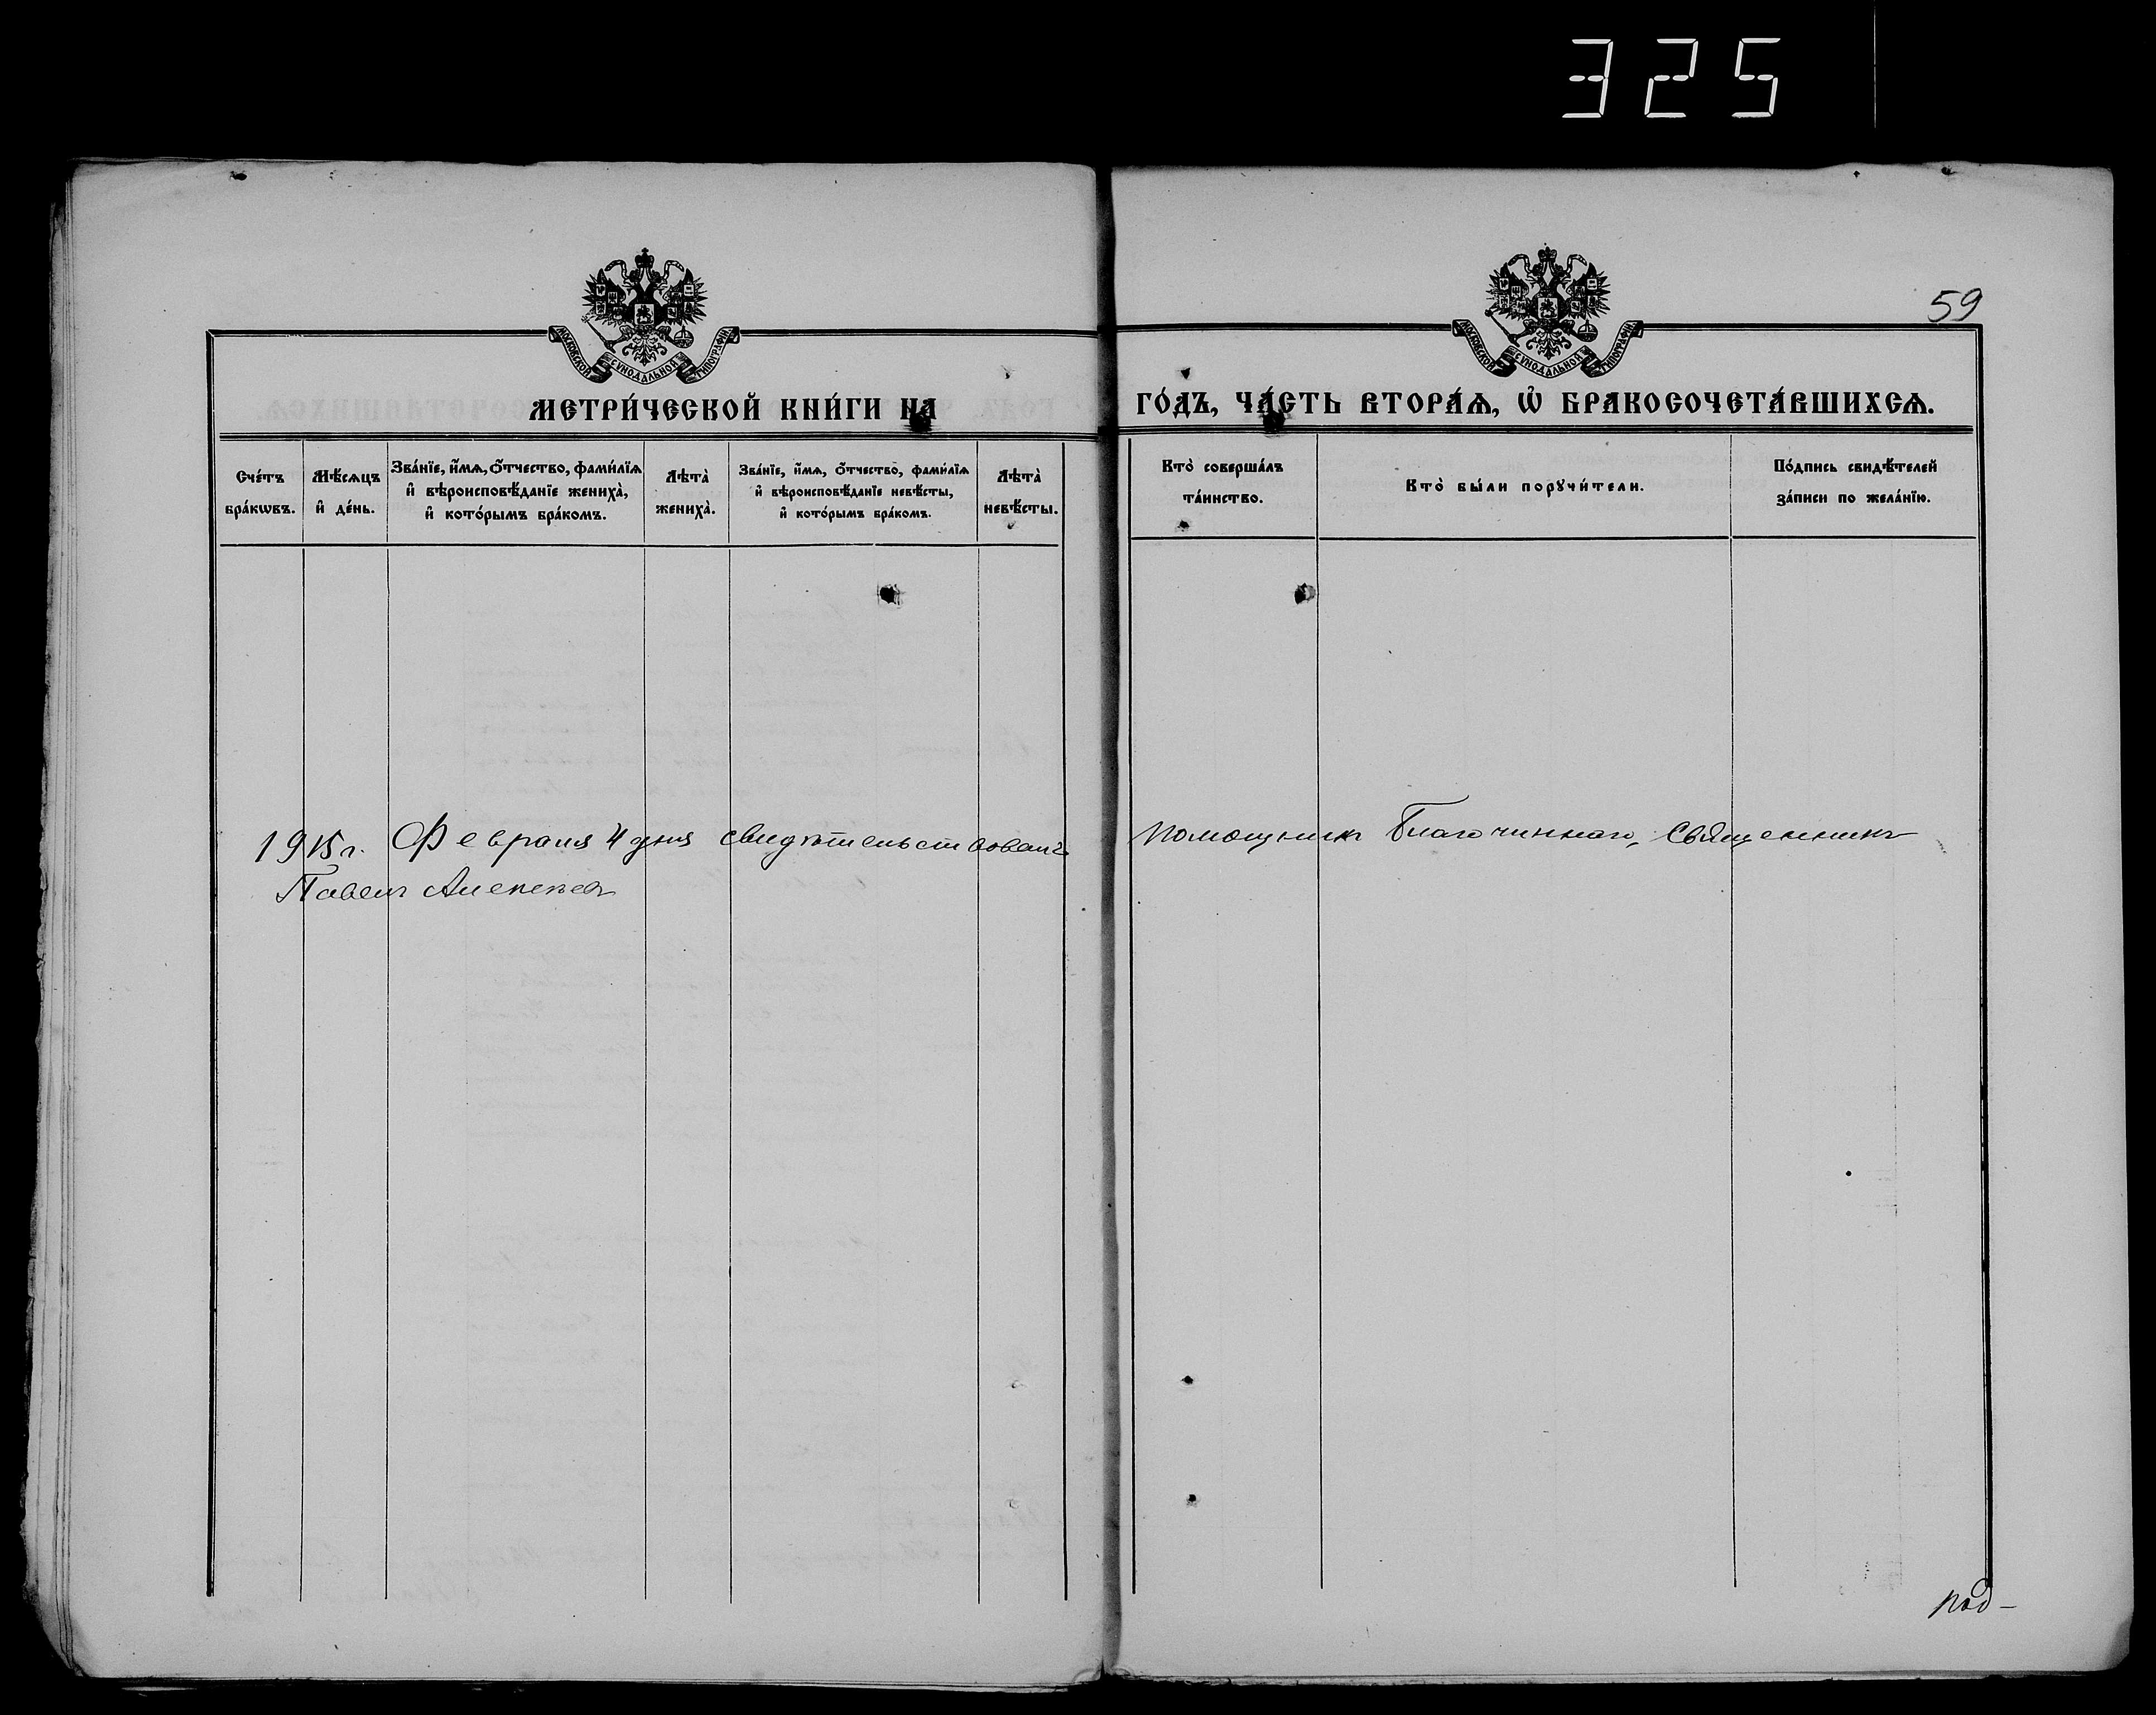 325
59
МОСКОВСКОЙ СѴНОДАЛЬНОЙ ТИПОГРАФІИ
МОСКОВСКОЙ СѴНОДАЛЬНОЙ ТИПОГРАФІИ
МЕТРИ́ЧЕСКОЙ КНИ́ГИ НА ГО́ДЪ, ЧА́СТЬ ВТОРА́Ѧ, Ѽ БРАКОСОЧЕТА́ВШИХСѦ.
Сче́тъ бра́кѡвъ.
Мѣ́сѧцъ и҆ де́нь.
Зва́нїе, и҆́мѧ, ѻ҆́тчество, фами́лїѧ и҆ вѣроисповѣ́данїе жениха̀, и҆ кото́рымъ бра́комъ.
Лѣта̀ жениха̀.
Зва́нїе, и҆́мѧ, ѻ҆́тчество, фами́лїѧ и҆ вѣроисповѣ́данїе невѣ́сты, и҆ кото́рымъ бра́комъ.
Лѣта̀ невѣ́сты.
Кто̀ соверша́лъ та́инство.
Кто̀ бы́ли порꙋчи́тели.
По́дпись свидѣ́телей за́писи по жела́нїю.
1915 г. Февраля 4 дня свидѣтельствовалъ Помощникъ Благочиннаго, Священникъ
Павелъ Алексѣев
под-